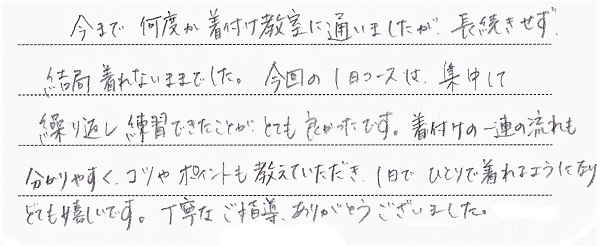 今まで何度か着付け教室に通いましたが、長続きせず、
結局着れないままでした。今回の1日コースは、集中して
繰り返し練習できたことがとても良かったです。着付けの一連の流れも
分かりやすく、コツやポイントも教えていただき、1日でひとりで着れるようになり
とても嬉しいです。丁寧なご指導、ありがとうございました。